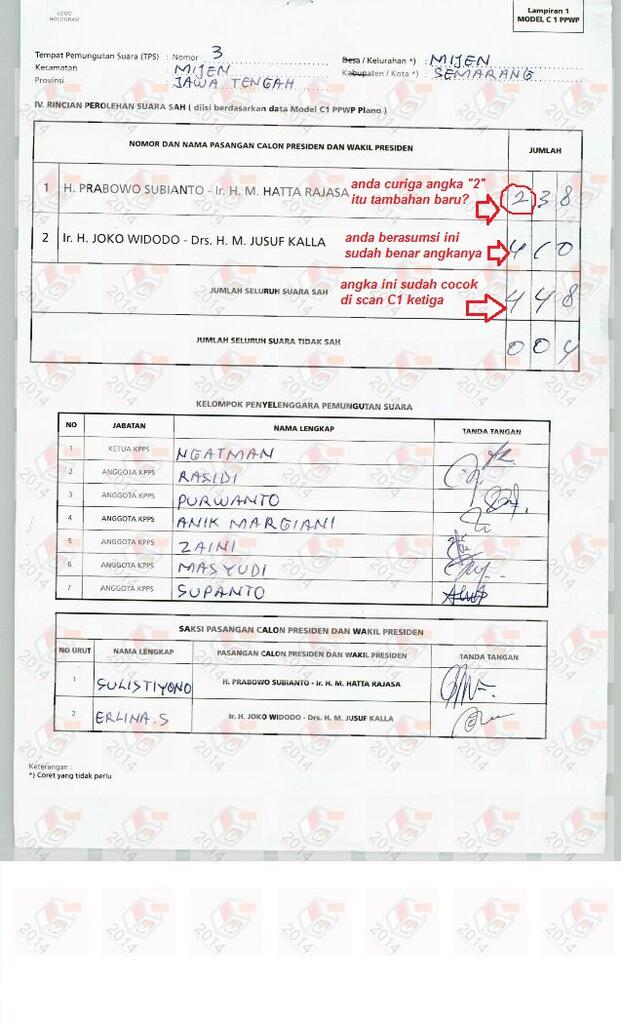 LOGO
HOLOGRAM
Lampiran 1
MODEL C 1 PPWP
Tempat Pemungutan Suara (TPS) : Nomor 3 Desa / Kelurahan *) : MIJEN
Kecamatan : MIJEN Kabupaten / Kota *) : SEMARANG
Provinsi : JAWA TENGAH
IV. RINCIAN PEROLEHAN SUARA SAH ( diisi berdasarkan data Model C1 PPWP Plano )
NOMOR DAN NAMA PASANGAN CALON PRESIDEN DAN WAKIL PRESIDEN JUMLAH
1 H. PRABOWO SUBIANTO - Ir. H. M. HATTA RAJASA 2 3 8
anda curiga angka "2"
itu tambahan baru?
2 Ir. H. JOKO WIDODO - Drs. H. M. JUSUF KALLA 4 1 0
anda berasumsi ini
sudah benar angkanya
JUMLAH SELURUH SUARA SAH 4 4 8
angka ini sudah cocok
di scan C1 ketiga
JUMLAH SELURUH SUARA TIDAK SAH 0 0 4
KELOMPOK PENYELENGGARA PEMUNGUTAN SUARA
NO JABATAN NAMA LENGKAP TANDA TANGAN
1 KETUA KPPS NGATMAN
2 ANGGOTA KPPS RASIDI
3 ANGGOTA KPPS PURWANTO
4 ANGGOTA KPPS ANIK MARGIANI
5 ANGGOTA KPPS ZAINI
6 ANGGOTA KPPS MASYUDI
7 ANGGOTA KPPS SUPANTO
SAKSI PASANGAN CALON PRESIDEN DAN WAKIL PRESIDEN
NO URUT NAMA LENGKAP PASANGAN CALON PRESIDEN DAN WAKIL PRESIDEN TANDA TANGAN
1 SULISTIYONO H. PRABOWO SUBIANTO - Ir. H. M. HATTA RAJASA
2 ERLINA.S Ir. H. JOKO WIDODO - Drs. H. M. JUSUF KALLA
Keterangan :
*) Coret yang tidak perlu
2014